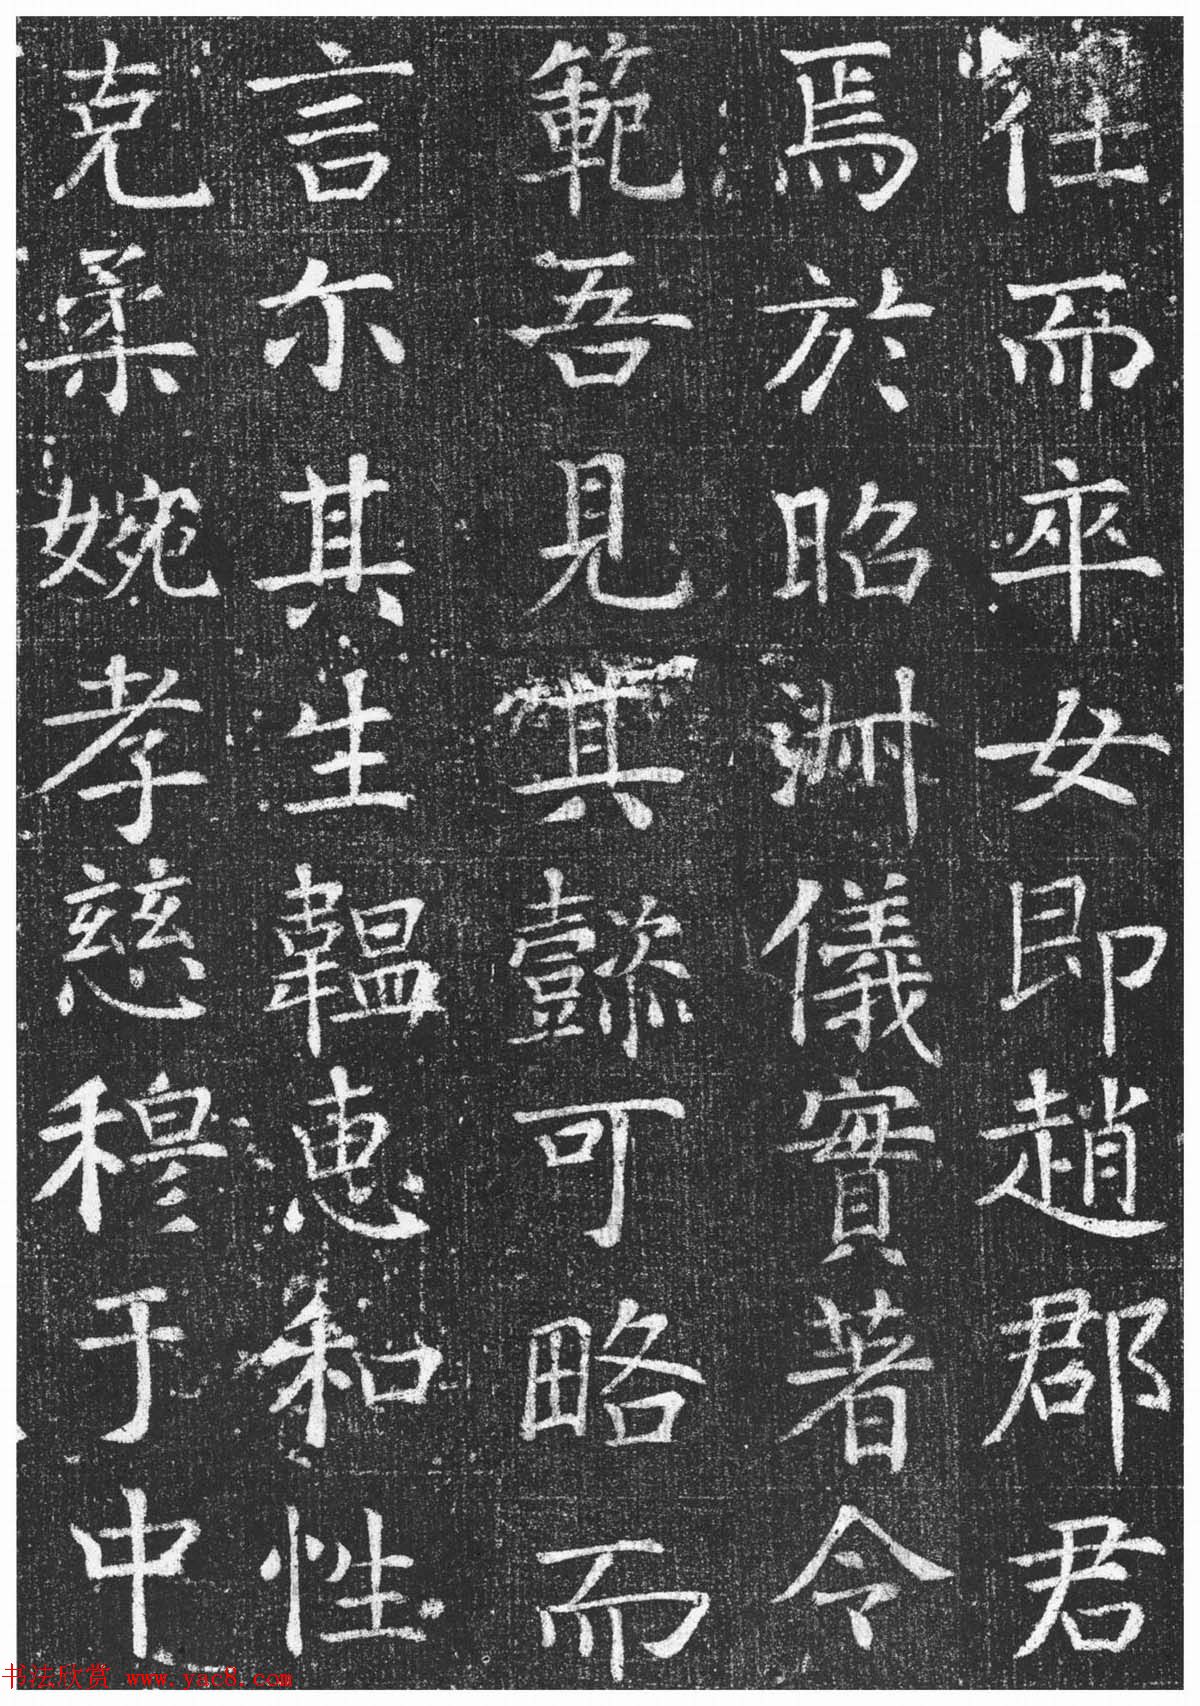 任而卒女即趙郡君
焉於昭淋儀實著令
範吾見其懿可略而
言尒其生韞惠和性
克柔婉孝慈穆于中
书法欣赏 www.yac8.com